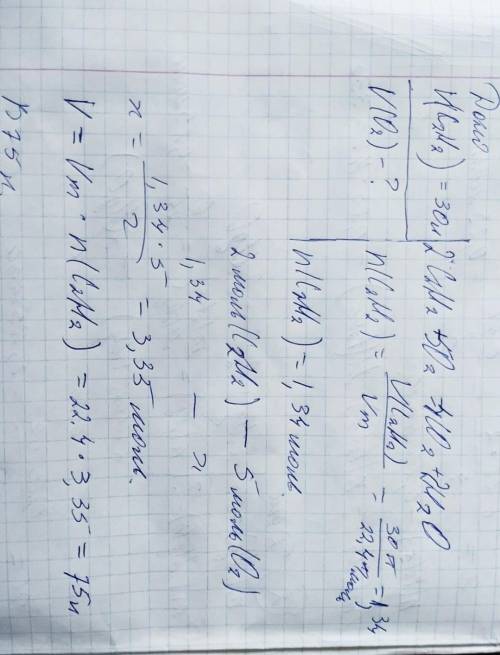 Дано
V(C₂H₂) = 30л
V(O₂) - ?
2C₂H₂ + 5O₂ = 4CO₂ + 2H₂O
n(C₂H₂) = V(C₂H₂) / Vm = 30 л / 22,4 л/моль = 1,34
n(C₂H₂) = 1,34 моль.
2 моль (C₂H₂) — 5 моль (O₂)
1,34 — x
x = 1,34 · 5 / 2 = 3,35 моль.
V = Vm · n(C₂H₂) = 22.4 · 3,35 = 75л
75 л.